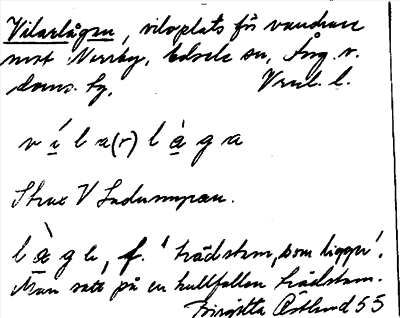 Vilarlågen, viloplats för vandrare
mot Nässby, Edsele sn, Ång. v.
doms. tg. Vml. l.
v í l a (r) l à g a
Strax V Ladumyran.
l à g a, f. "trädstam, som ligger".
Man satt på en kullfallen trädstam.
Birgitta Östlund 55